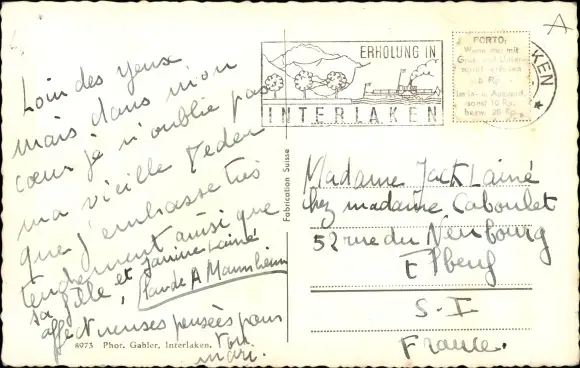 Loin des yeux
mais dans mon
cœur je n'oublie pas
ma vieille Veden
que j'embrasse très
tendrement ainsi que
sa fille et Janine Lainé
Claude A Mannheim
affectueuses pensées pour
ton
mari.
8973 Phot. Gabler, Interlaken.
Fabrication Suisse
ERHOLUNG IN
INTERLAKEN
KEN
PORTO:
Wenn nur mit
Gruss und Unter-
5 Rp.
sonst 10 Rp.
bezw. 20 Rp.
A
Madame Jack Lainé
chez madame Caboulet
52 rue du Neubourg
Elbeuf
S-I
France.